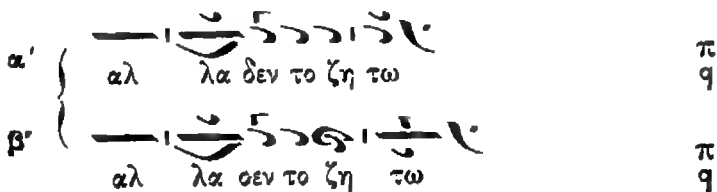 α' αλ λα δεν το ζη τω π q
β' αλ λα σεν το ζη τω π q